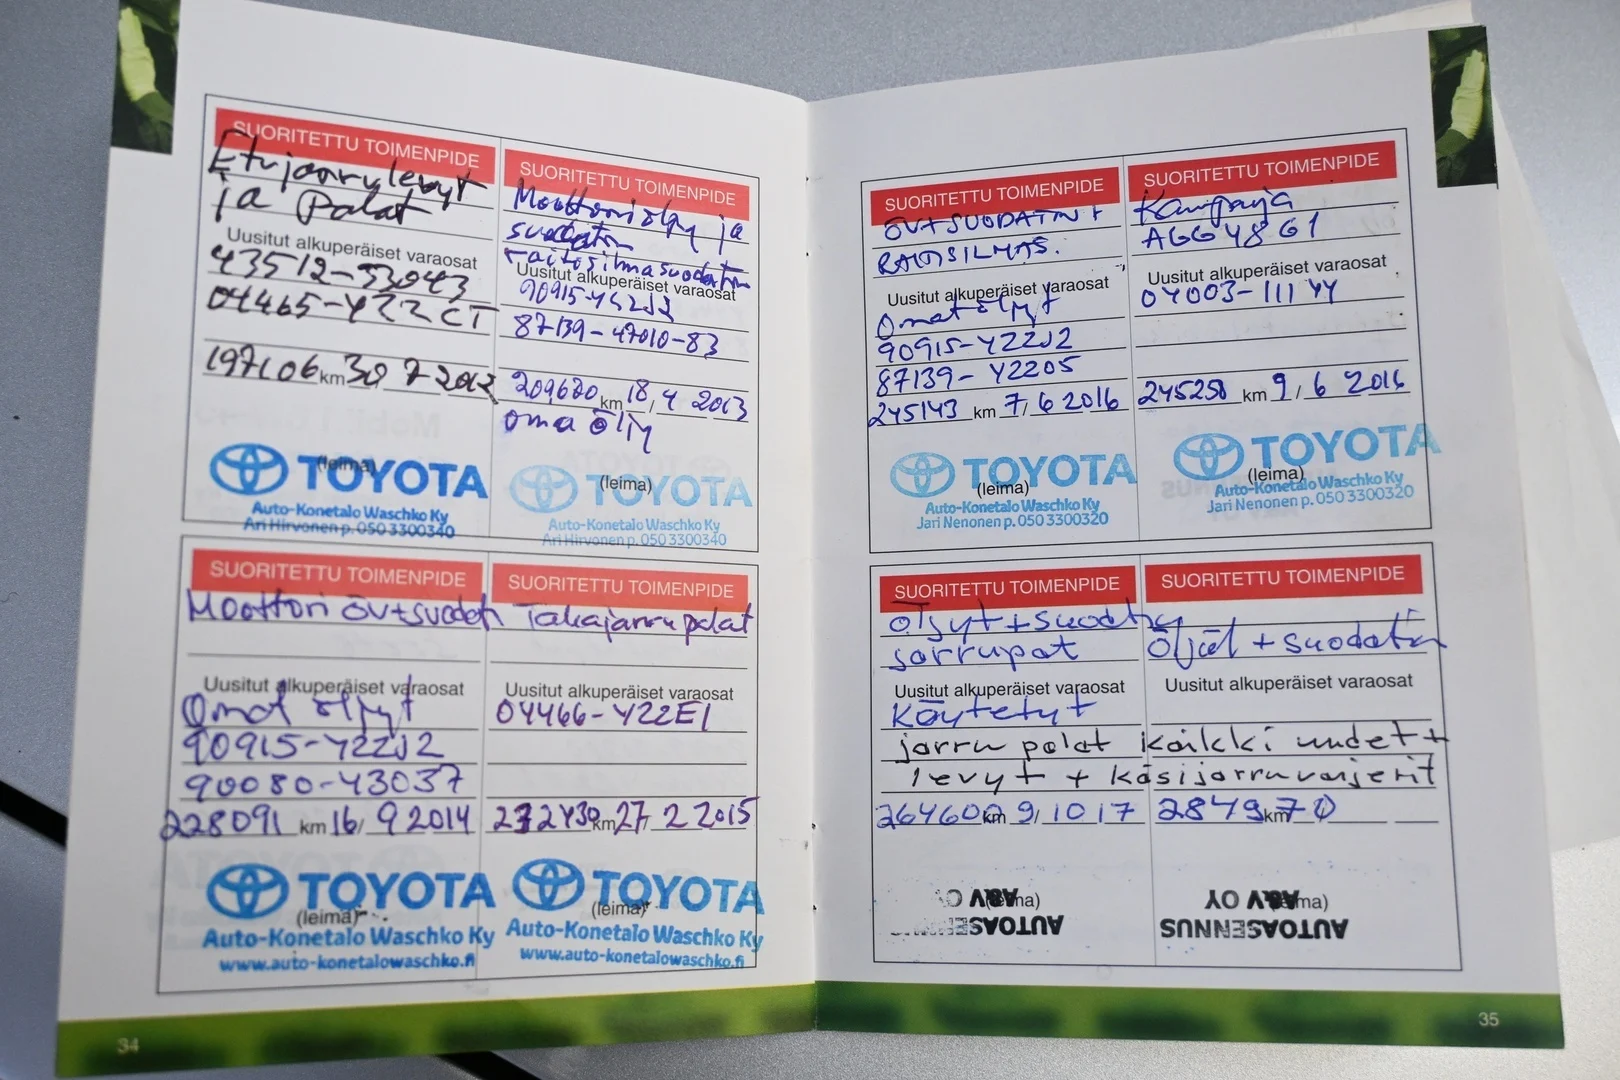 SUORITETTU TOIMENPIDE
Etujarrulevyt
ja Palat
Uusitut alkuperäiset varaosat
43512-53043
04465-YZZCT
197106 km 30 7 2012
(leima)
TOYOTA
Auto-Konetalo Waschko Ky
Ari Hirvonen p. 050 3300340
SUORITETTU TOIMENPIDE
Moottoriöljy ja
suodatin
raitisilmasuodatin
Uusitut alkuperäiset varaosat
90915-YZZJ2
87139-47010-83
209620 km 18/4 2013
oma öljy
(leima)
TOYOTA
Auto-Konetalo Waschko Ky
Ari Hirvonen p. 050 3300340
SUORITETTU TOIMENPIDE
Moottori öv+suodatin
Uusitut alkuperäiset varaosat
Omat öljyt
90915-YZZJ2
90080-43037
228091 km 16/9 2014
TOYOTA
(leima)
Auto-Konetalo Waschko Ky
www.auto-konetalowaschko.fi
SUORITETTU TOIMENPIDE
Takajarrupalat
Uusitut alkuperäiset varaosat
04466-YZZE1
232430 km 27/2 2015
TOYOTA
(leima)
Auto-Konetalo Waschko Ky
www.auto-konetalowaschko.fi
34
SUORITETTU TOIMENPIDE
ÖV+SUODATIN+
RAITISILMAS.
Uusitut alkuperäiset varaosat
Omat öljyt
90915-YZZJ2
87139-YZZ05
245143 km 7/6 2016
TOYOTA
(leima)
Auto-Konetalo Waschko Ky
Jari Nenonen p. 050 3300320
SUORITETTU TOIMENPIDE
Kampanja
AGG48G1
Uusitut alkuperäiset varaosat
04003-111YY
245258 km 9/6 2016
TOYOTA
(leima)
Auto-Konetalo Waschko Ky
Jari Nenonen p. 050 3300320
SUORITETTU TOIMENPIDE
SUORITETTU TOIMENPIDE
Öljyt+suodatin
jarrupat
Öljät + suodatin
Uusitut alkuperäiset varaosat
Uusitut alkuperäiset varaosat
Käytetyt
jarru palat kaikki uudet +
levyt + käsijarruvaijerit
264600 km 9/10 17
2849 km 70
AUTOASENNUS
A&V OY
AUTOASENNUS
A&V OY
35